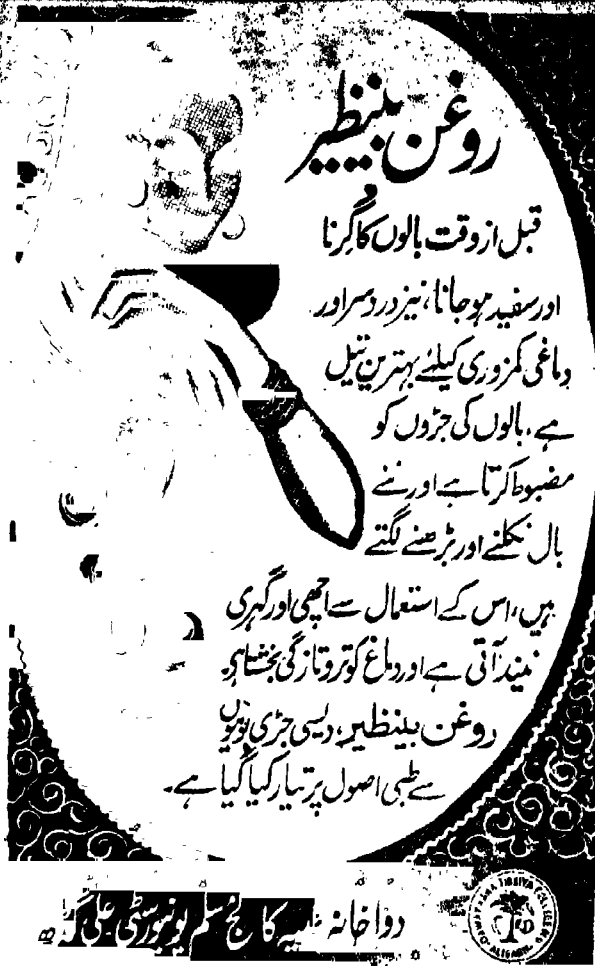 روغن بینظیر
قبل از وقت بالوں کا گرنا
اور سفید ہو جانا، نیز درد سر اور
دماغی کمزوری کیلئے بہترین تیل
ہے، بالوں کی جڑوں کو
مضبوط کرتا ہے اور نئے
بال نکلنے اور بڑھنے لگتے
ہیں، اس کے استعمال سے اچھی اور گہری
نیند آتی ہے اور دماغ کو تروتازگی بخشتا ہے۔
روغن بینظیر، دیسی جڑی بوٹیوں
سے طبی اصول پر تیار کیا گیا ہے۔
دواخانہ طبیہ کالج مسلم یونیورسٹی علی گڑھ
DAWAKHANA TIBBIYA COLLEGE ALIGARH